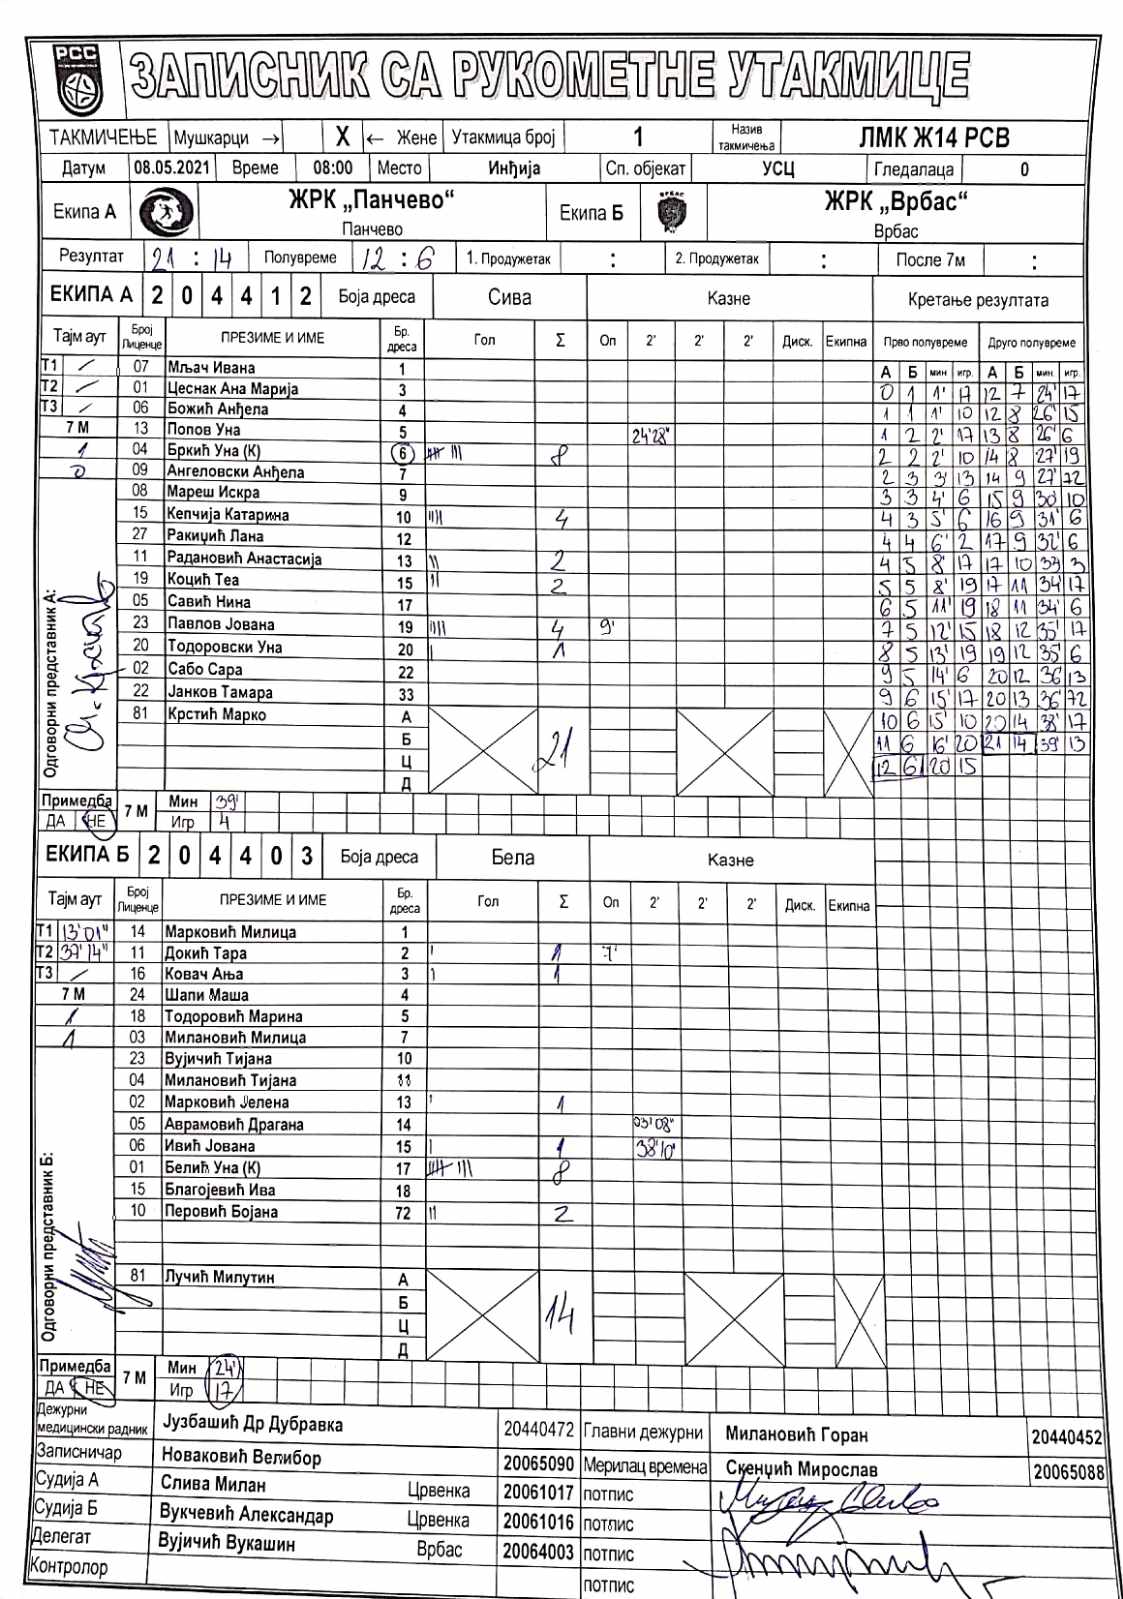 РСС
ЗАПИСНИК СА РУКОМЕТНЕ УТАКМИЦЕ
ТАКМИЧЕЊЕ Мушкарци → X ← Жене Утакмица број 1 Назив такмичења ЛМК Ж14 РСВ
Датум 08.05.2021 Време 08:00 Место Инђија Сп. објекат УСЦ Гледалаца 0
Екипа А ЖРК „Панчево“ Екипа Б ЖРК „Врбас“
Панчево Врбас
Резултат 21 : 14 Полувреме 12 : 6 1. Продужетак : 2. Продужетак : После 7м :
ЕКИПА А 2 0 4 4 1 2 Боја дреса Сива Казне Кретање резултата
Тајм аут Број Лиценце ПРЕЗИМЕ И ИМЕ Бр. дреса Гол Σ Оп 2' 2' 2' Диск. Екипна Прво полувреме Друго полувреме
Т1 / 07 Мљач Ивана 1 А Б мин игр. А Б мин игр.
Т2 / 01 Цеснак Ана Марија 3 0 1 1' 17 12 7 24' 17
Т3 / 06 Божић Анђела 4 1 1 1' 10 12 8 26' 15
7 М 13 Попов Уна 5 24'28" 1 2 2' 17 13 8 26' 6
1 04 Бркић Уна (К) 6 8 2 2 2' 10 14 8 27' 19
0 09 Ангеловски Анђела 7 2 3 3' 13 14 9 27' 72
08 Мареш Искра 9 3 3 4' 6 15 9 30' 10
15 Кепчија Катарина 10 4 4 3 5' 6 16 9 31' 6
27 Ракиџић Лана 12 4 4 6' 2 17 9 32' 6
11 Радановић Анастасија 13 2 4 5 8' 17 17 10 33' 3
19 Коцић Теа 15 2 5 5 8' 19 17 11 34' 17
05 Савић Нина 17 6 5 11' 19 18 11 34' 6
23 Павлов Јована 19 4 9' 7 5 12' 15 18 12 35' 17
20 Тодоровски Уна 20 1 8 5 13' 19 19 12 35' 6
02 Сабо Сара 22 9 5 14' 6 20 12 36' 13
22 Јанков Тамара 33 9 6 15' 17 20 13 36' 72
81 Крстић Марко А 10 6 15' 10 20 14 38' 17
Б 21 11 6 16' 20 21 14 39' 13
Ц 12 6 20 15
Д
Одговорни представник А:
Примедба 7 М Мин 39'
ДА НЕ Игр 4
ЕКИПА Б 2 0 4 4 0 3 Боја дреса Бела Казне
Тајм аут Број Лиценце ПРЕЗИМЕ И ИМЕ Бр. дреса Гол Σ Оп 2' 2' 2' Диск. Екипна
Т1 13'01" 14 Марковић Милица 1
Т2 37'14" 11 Докић Тара 2 1 7'
Т3 / 16 Ковач Ања 3 1
7 М 24 Шапи Маша 4
1 18 Тодоровић Марина 5
1 03 Милановић Милица 7
23 Вујичић Тијана 10
04 Милановић Тијана 11
02 Марковић Јелена 13 1
05 Аврамовић Драгана 14 03'08"
06 Ивић Јована 15 1 38'10'
01 Белић Уна (К) 17 8
15 Благојевић Ива 18
10 Перовић Бојана 72 2
81 Лучић Милутин А
Б 14
Ц
Д
Одговорни представник Б:
Примедба 7 М Мин 24'
ДА НЕ Игр 17
Дежурни медицински радник Јузбашић Др Дубравка 20440472 Главни дежурни Милановић Горан 20440452
Записничар Новаковић Велибор 20065090 Мерилац времена Скенџић Мирослав 20065088
Судија А Слива Милан Црвенка 20061017 потпис
Судија Б Вукчевић Александар Црвенка 20061016 потпис
Делегат Вујичић Вукашин Врбас 20064003 потпис
Контролор потпис